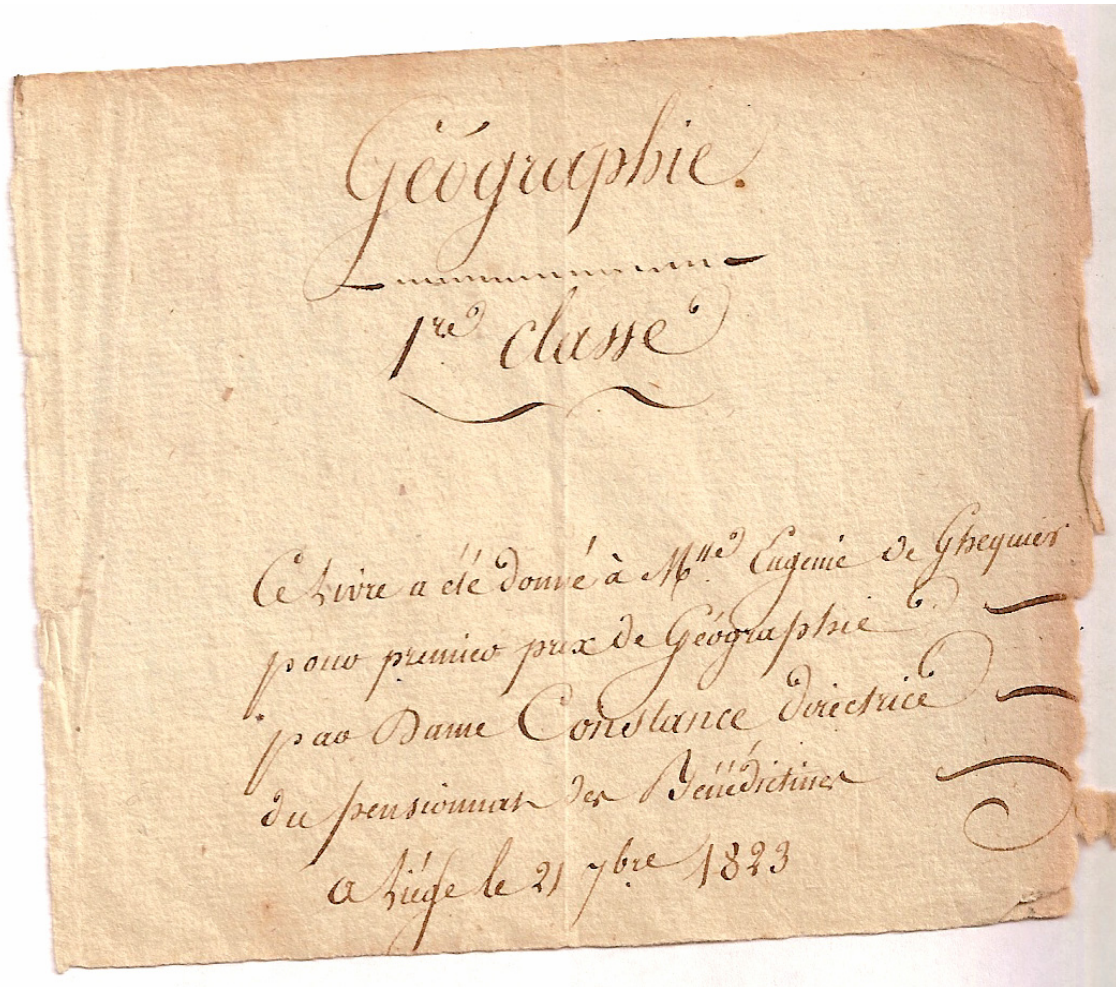 Géographie.
1re classe
Ce Livre a été donné à Mlle Eugenie de Ghequier
pour premier prix de Géographie
par Dame Constance directrice
du pensionnat des Bénédictines
a Liége le 21 7bre 1823